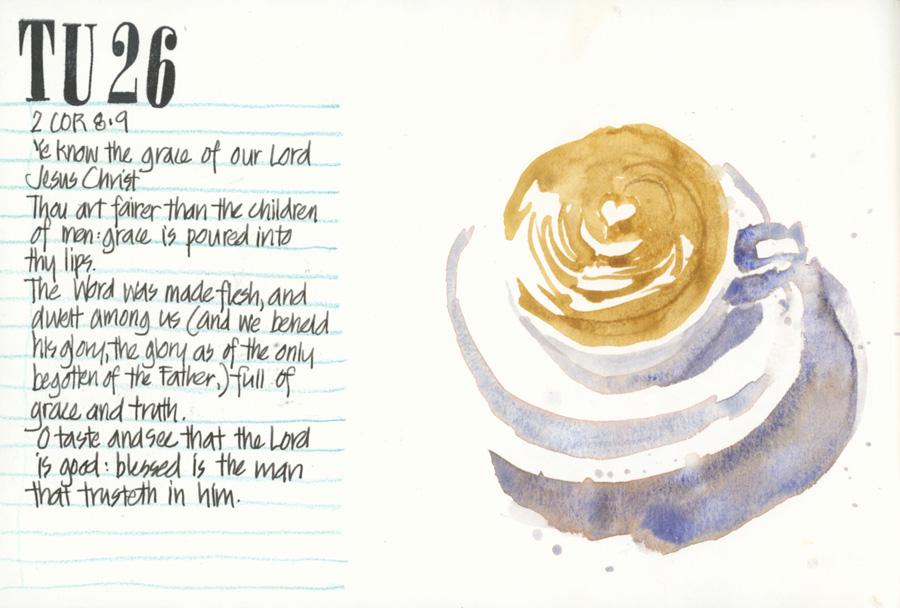 TU 26
2 COR 8·9
Ye know the grace of our Lord
Jesus Christ
Thou art fairer than the children
of men: grace is poured into
thy lips.
The Word was made flesh, and
dwelt among us (and we beheld
his glory, the glory as of the only
begotten of the Father,) full of
grace and truth.
O taste and see that the Lord
is good: blessed is the man
that trusteth in him.